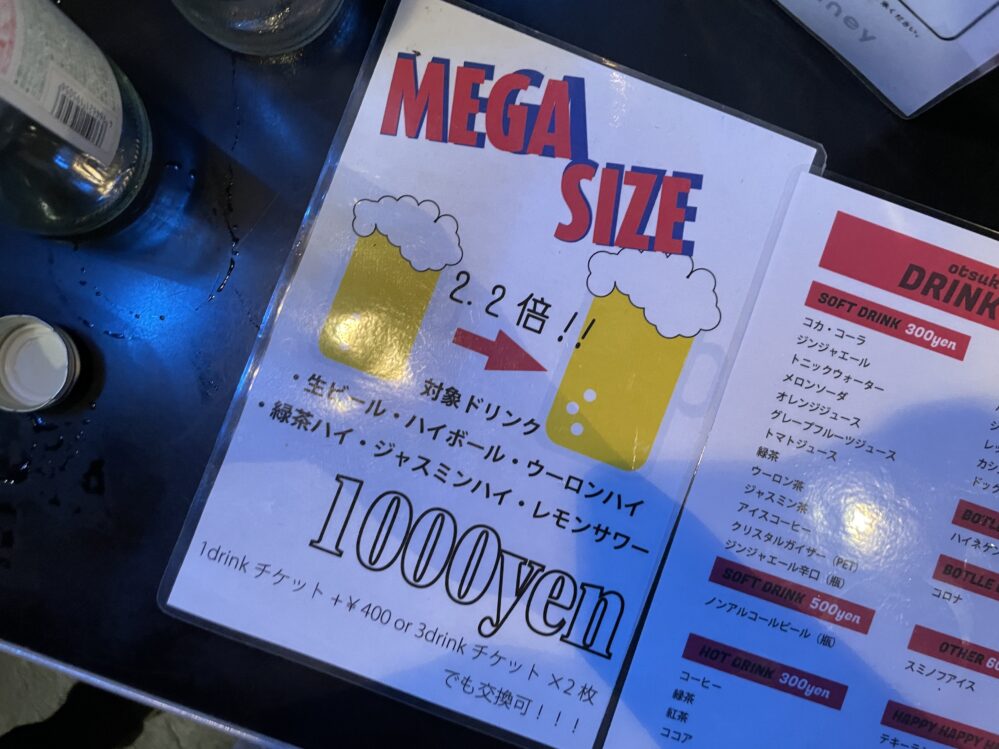 MEGA
SIZE
2.2倍!!
対象ドリンク
・生ビール・ハイボール・ウーロンハイ
・緑茶ハイ・ジャスミンハイ・レモンサワー
1000yen
1drink チケット +¥400 or 3drink チケット ×2枚
でも交換可!!!
otsuk
DRINK
SOFT DRINK 300yen
コカ・コーラ
ジンジャエール
トニックウォーター
メロンソーダ
オレンジジュース
グレープフルーツジュース
トマトジュース
緑茶
ウーロン茶
ジャスミン茶
アイスコーヒー
クリスタルガイザー (PET)
ジンジャエール辛口 (瓶)
SOFT DRINK 500yen
ノンアルコールビール (瓶)
HOT DRINK 300yen
コーヒー
緑茶
紅茶
ココア
BOTLL
ハイネケ
BOTLLE
コロナ
OTHER 60
スミノフアイス
HAPPY HAPPY H
テキーラ